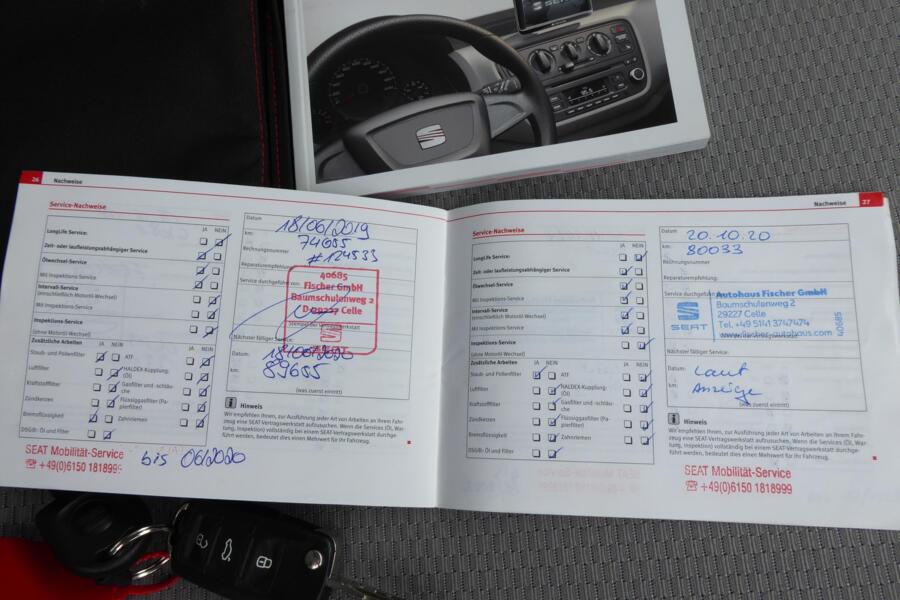 26 Nachweise
Service-Nachweise
JA NEIN
LongLife Service:
Zeit- oder laufleistungsabhängiger Service
Ölwechsel-Service
Mit Inspektions-Service
Intervall-Service
(einschließlich Motoröl-Wechsel)
Mit Inspektions-Service
Inspektions-Service
(ohne Motoröl-Wechsel)
Zusätzliche Arbeiten
JA NEIN JA NEIN
Staub- und Pollenfilter
ATF
Luftfilter
HALDEX-Kupplung (Öl)
Kraftstofffilter
Gasfilter und -schläuche
Zündkerzen
Flüssiggasfilter (Papierfilter)
Bremsflüssigkeit
Zahnriemen
DSG®: Öl und Filter
SEAT Mobilität-Service
+49(0)6150 1818999
bis 06/2020
Datum 18/06/2019
km: 74655
Rechnungsnummer #124533
Reparaturempfehlung:
Service durchgeführt von:
40685
Fischer GmbH
Baumschulenweg 2
D-29227 Celle
Nächster fälliger Service:
Datum: 18/06/2020
km: 89655
(was zuerst eintritt)
Hinweis
Wir empfehlen Ihnen, zur Ausführung jeder Art von Arbeiten an Ihrem Fahr-
zeug eine SEAT-Vertragswerkstatt aufzusuchen. Wenn die Services (Öl, War-
tung, Inspektion) vollständig bei einem SEAT-Vertragswerkstatt durchge-
führt werden, bedeutet dies einen Mehrwert für Ihr Fahrzeug.
Nachweise 27
Service-Nachweise
JA NEIN
LongLife Service:
Zeit- oder laufleistungsabhängiger Service
Ölwechsel-Service
Mit Inspektions-Service
Intervall-Service
(einschließlich Motoröl-Wechsel)
Mit Inspektions-Service
Inspektions-Service
(ohne Motoröl-Wechsel)
Zusätzliche Arbeiten
JA NEIN JA NEIN
Staub- und Pollenfilter
ATF
Luftfilter
HALDEX-Kupplung (Öl)
Kraftstofffilter
Gasfilter und -schläuche
Zündkerzen
Flüssiggasfilter (Papierfilter)
Bremsflüssigkeit
Zahnriemen
DSG®: Öl und Filter
Datum 20.10.20
km: 80033
Rechnungsnummer
Reparaturempfehlung:
Service durchgeführt
SEAT
Autohaus Fischer GmbH
Baumschulenweg 2
29227 Celle
Tel. +49 5141 3747474
www.fischer-autohaus.com
40685
Nächster fälliger Service:
Datum: Laut
km: Anzeige
(was zuerst eintritt)
Hinweis
Wir empfehlen Ihnen, zur Ausführung jeder Art von Arbeiten an Ihrem Fahr-
zeug eine SEAT-Vertragswerkstatt aufzusuchen. Wenn die Services (Öl, War-
tung, Inspektion) vollständig bei einem SEAT-Vertragswerkstatt durchge-
führt werden, bedeutet dies einen Mehrwert für Ihr Fahrzeug.
SEAT Mobilität-Service
+49(0)6150 1818999